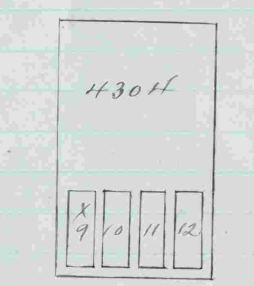 4304
X
9 10 11 12